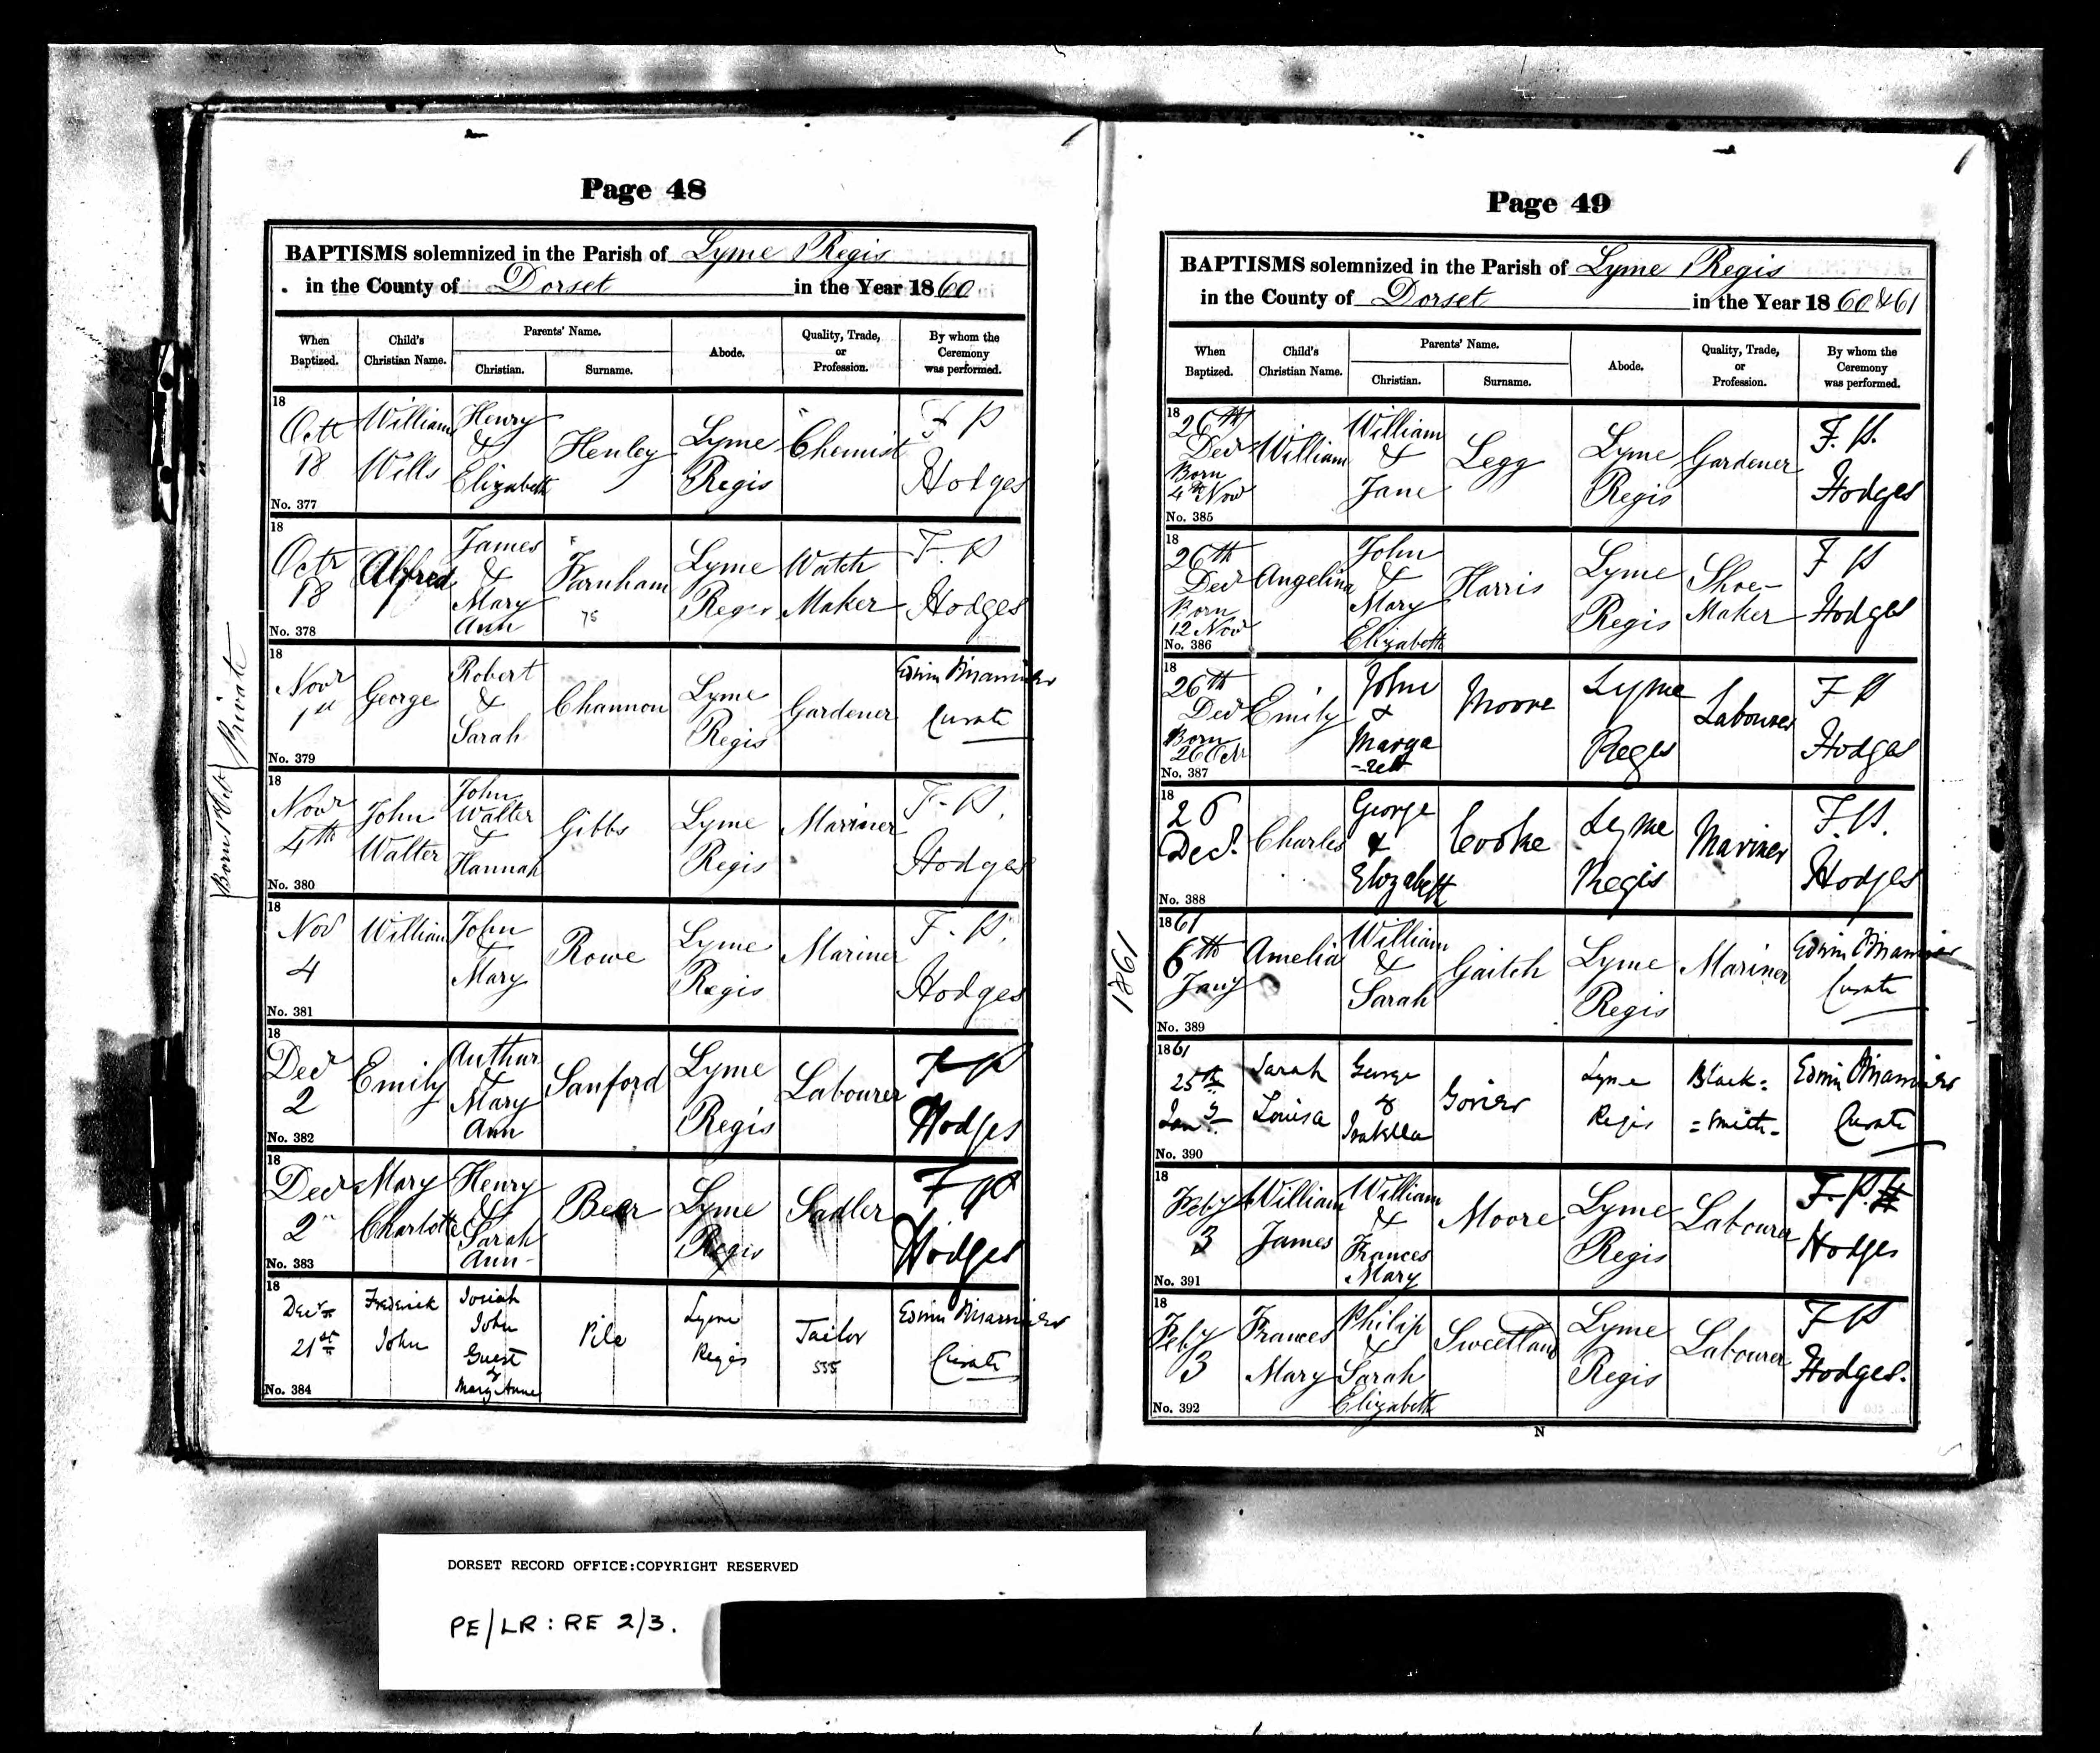 Page 48
BAPTISMS solemnized in the Parish of Lyme Regis
in the County of Dorset in the Year 1860
When Baptized. Child's Christian Name. Parents' Name. Christian. Surname. Abode. Quality, Trade, or Profession. By whom the Ceremony was performed.
18 Octr 18 William Wills Henry & Elizabeth Henley Lyme Regis Chemist F P Hodges
No. 377
18 Octr 18 Alfred James & Mary Ann Farnham Lyme Regis Watch Maker F. P Hodges
No. 378
18 Novr 1st George Robert & Sarah Channon Lyme Regis Gardener Edwin Curate
No. 379
Private
18 Novr 4th John Walter John Walter & Hannah Gibbs Lyme Regis Mariner F. P. Hodges
No. 380
Born
18 Nov 4 William John & Mary Rowe Lyme Regis Mariner F. P. Hodges
No. 381
18 Decr 2 Emily Arthur & Mary Ann Sanford Lyme Regis Labourer F P Hodges
No. 382
18 Decr 2 Mary Charlotte Henry & Sarah Ann Bear Lyme Regis Sadler F P Hodges
No. 383
18 Decr 21st Frederick John Josiah John Guest & Mary Anne Pile Lyme Regis Tailor 555 Edwin Curate
No. 384
Page 49
BAPTISMS solemnized in the Parish of Lyme Regis
in the County of Dorset in the Year 1860 & 61
When Baptized. Child's Christian Name. Parents' Name. Christian. Surname. Abode. Quality, Trade, or Profession. By whom the Ceremony was performed.
18 26th Decr Born 4th Nov William William & Jane Legg Lyme Regis Gardener F. P. Hodges
No. 385
18 26th Decr Born 12 Nov Angelina John & Mary Elizabeth Harris Lyme Regis Shoe-Maker F P Hodges
No. 386
18 26th Decr Born 26 Octr Emily John & Marga-rett Moore Lyme Regis Labourer F P Hodges
No. 387
18 26 Decr. Charles George & Elizabeth Cooke Lyme Regis Mariner F. P. Hodges
No. 388
1861
1861 6th Jany Amelia William & Sarah Gaitch Lyme Regis Mariner Edwin Curate
No. 389
1861 25th Jany Sarah Louisa George & Isabella Govier Lyme Regis Black=
=smith- Edwin Curate
No. 390
18 Feby 3 William James William & Frances Mary Moore Lyme Regis Labourer F. P. Hodges
No. 391
18 Feby 3 Frances Mary Philip & Sarah Elizabeth Sweetland Lyme Regis Labourer F P Hodges.
No. 392
N
DORSET RECORD OFFICE:COPYRIGHT RESERVED
PE/LR: RE 2/3.